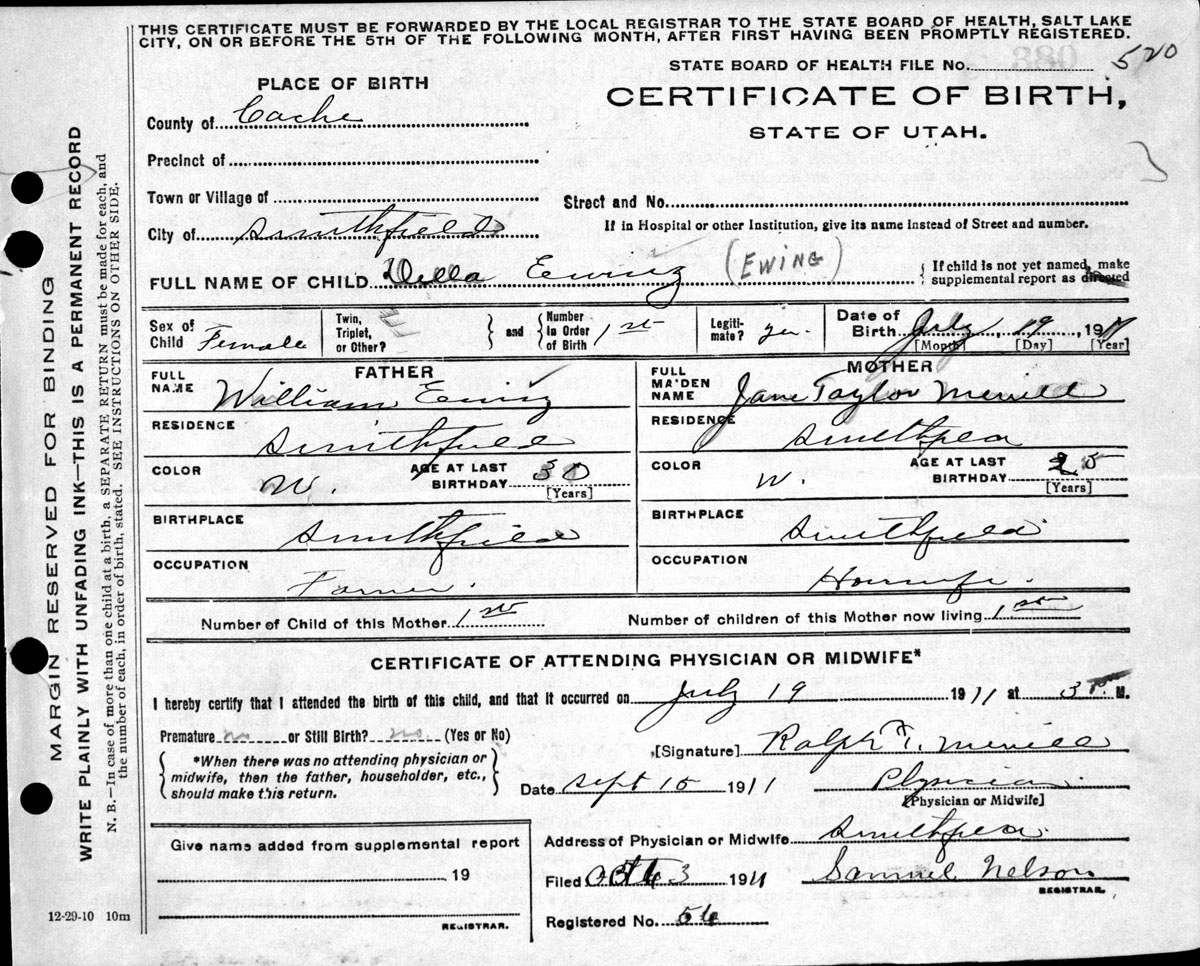 THIS CERTIFICATE MUST BE FORWARDED BY THE LOCAL REGISTRAR TO THE STATE BOARD OF HEALTH, SALT LAKE
CITY, ON OR BEFORE THE 5TH OF THE FOLLOWING MONTH, AFTER FIRST HAVING BEEN PROMPTLY REGISTERED.
STATE BOARD OF HEALTH FILE No. 520
PLACE OF BIRTH
CERTIFICATE OF BIRTH,
STATE OF UTAH.
County of Cache
Precinct of
Town or Village of
Street and No.
City of Smithfield
If in Hospital or other Institution, give its name instead of Street and number.
FULL NAME OF CHILD Della Ewing (EWING)
If child is not yet named, make
supplemental report as directed
Sex of Child Female
Twin, Triplet, or Other?
and
Number In Order of Birth 1st
Legiti-mate? yes
Date of Birth July 19, 1911
[Month] [Day] [Year]
FATHER
MOTHER
FULL NAME William Ewing
FULL MAIDEN NAME Jane Taylor Merrill
RESIDENCE Smithfield
RESIDENCE Smithfield
COLOR W.
AGE AT LAST BIRTHDAY 30
[Years]
COLOR W.
AGE AT LAST BIRTHDAY 25
[Years]
BIRTHPLACE Smithfield
BIRTHPLACE Smithfield
OCCUPATION Farmer.
OCCUPATION Housewife.
Number of Child of this Mother 1st
Number of children of this Mother now living 1st
CERTIFICATE OF ATTENDING PHYSICIAN OR MIDWIFE*
I hereby certify that I attended the birth of this child, and that it occurred on July 19 1911 at 3 P. M.
Premature no or Still Birth? no. (Yes or No)
*When there was no attending physician or
midwife, then the father, householder, etc.,
should make this return.
[Signature] Ralph T. Merrill
Date Sept 15 1911
Physician
[Physician or Midwife]
Give name added from supplemental report
19
REGISTRAR.
12-29-10 10m
Address of Physician or Midwife Smithfield
Filed Oct 3 1911
Samuel Nelson
REGISTRAR.
Registered No. 56
MARGIN RESERVED FOR BINDING
WRITE PLAINLY WITH UNFADING INK—THIS IS A PERMANENT RECORD
N. B.—In case of more than one child at a birth, a SEPARATE RETURN must be made for each, and
the number of each, in order of birth, stated. SEE INSTRUCTIONS ON OTHER SIDE.